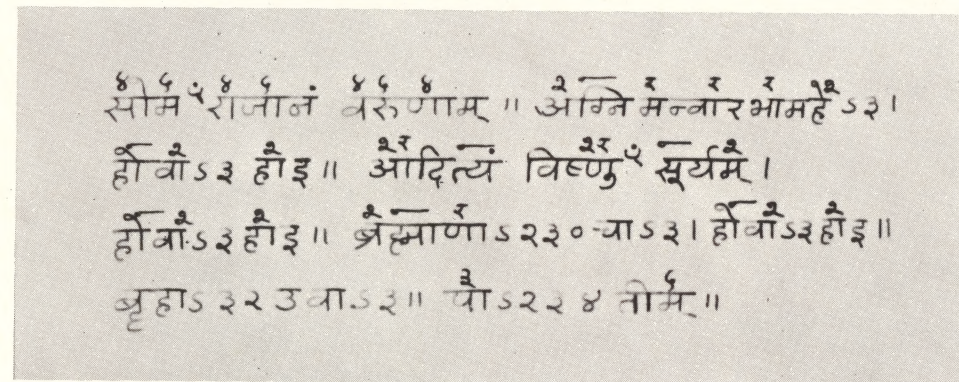 सोमꣳ राजानं वरुणाम् ॥ अग्निमन्वारभामहेऽ३ ।
होवाऽ३ होइ ॥ आदित्यं विष्णुꣳ सूर्यम् ।
होवाऽ३होइ ॥ ब्रह्माणाऽ२३०चाऽ३ । होवाऽ३होइ ॥
बृहाऽ३२उवाऽ३ ॥ पोऽ२३४ तोम् ॥